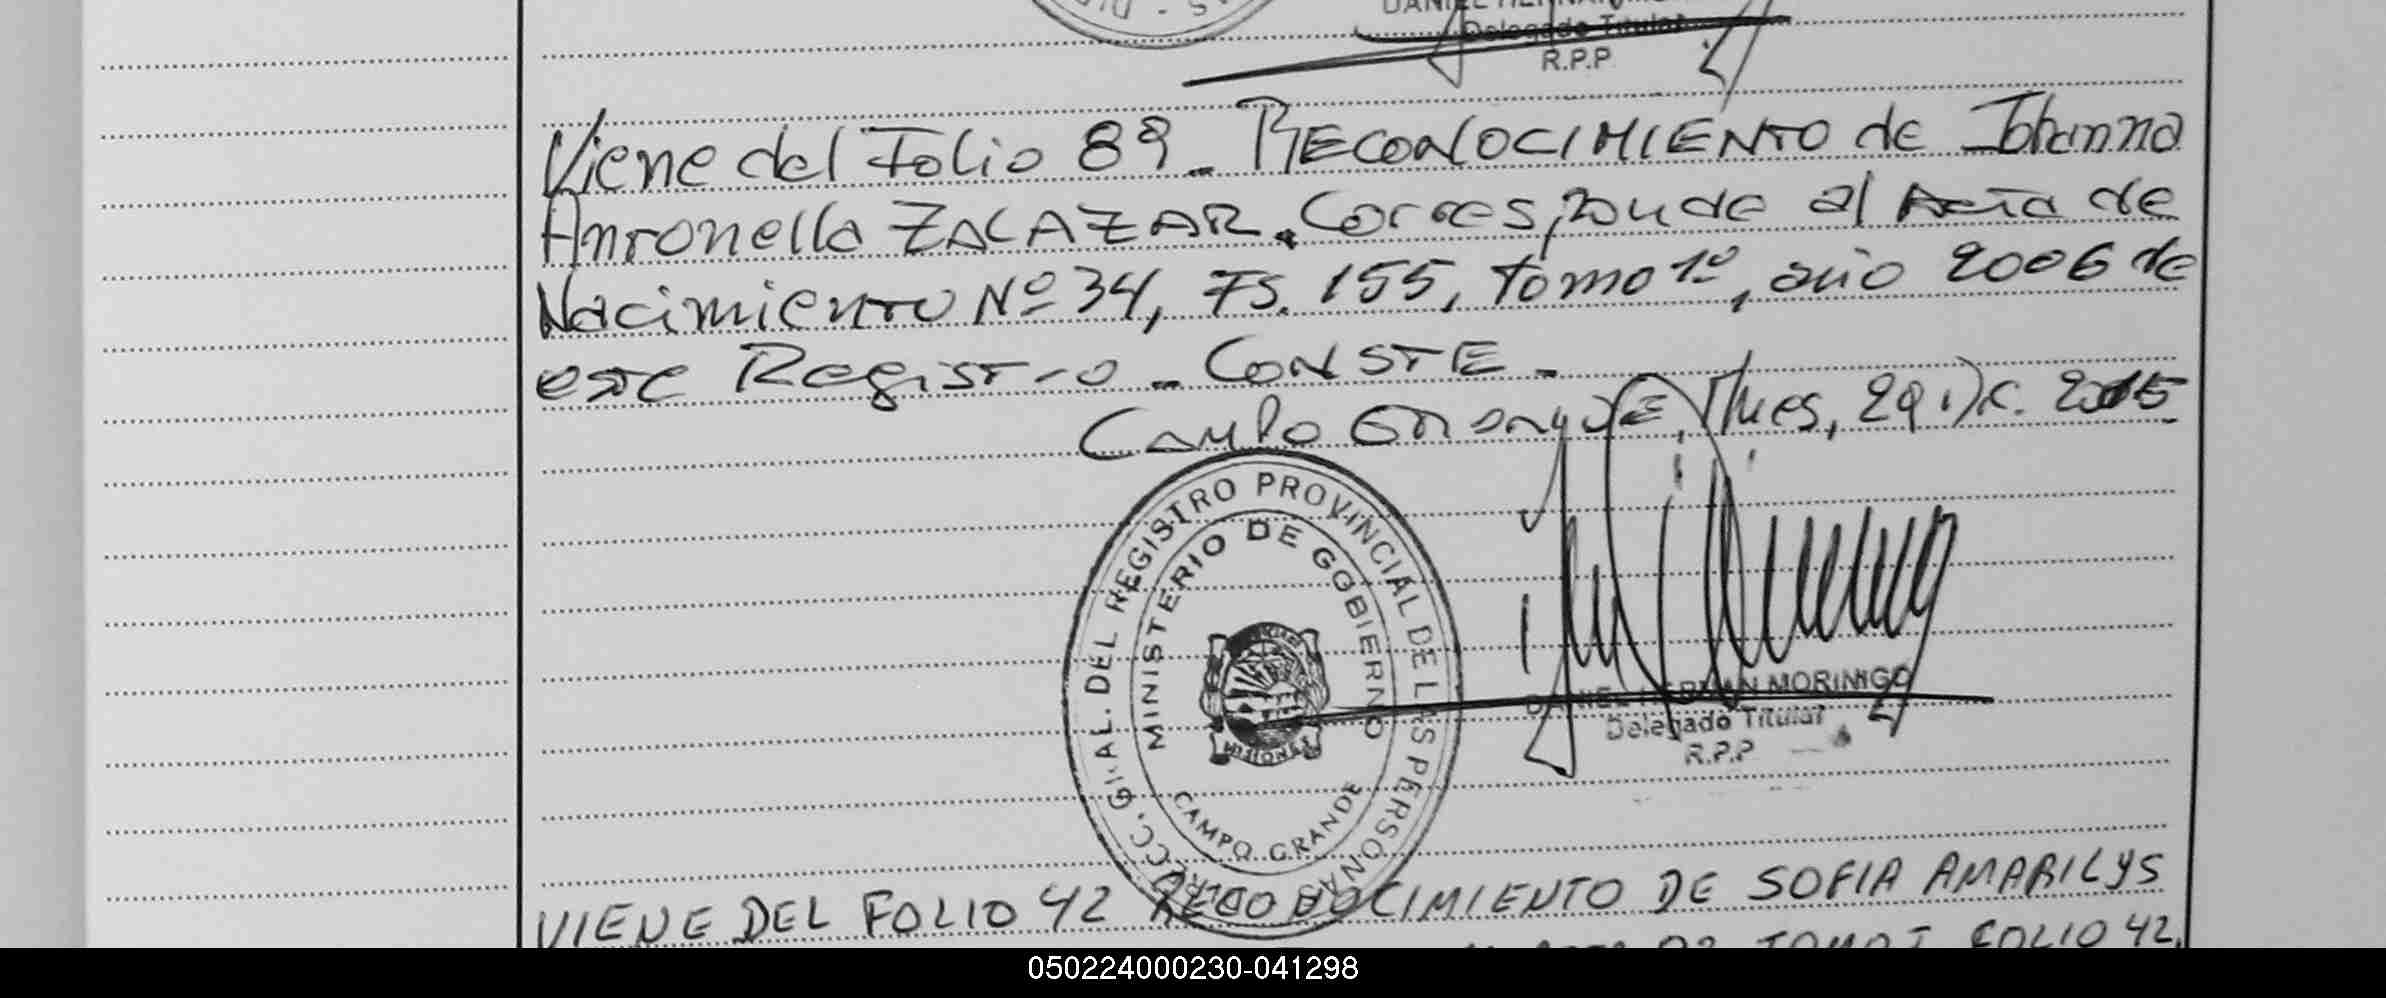 DANIEL HERNAN
Delegado Titular
R.P.P
Viene del Folio 89_ RECONOCIMIENTO de Iohanna
Antonella ZALAZAR. Corresponde al Acta de
Nacimiento Nº 34, FS. 155, tomo 1º, año 2006 de
este Registro _ CONSTE _
Campo Grande, Mnes, 29 Dic. 2015
DEL REGISTRO PROVINCIAL DE LAS PERSONAS
MINISTERIO DE GOBIERNO
MISIONES
CAMPO GRANDE
DANIEL HERNAN MORINIGO
Delegado Titular
R.P.P
VIENE DEL FOLIO 42 RECONOCIMIENTO DE SOFIA AMARILYS
TOMO I FOLIO 42,
050224000230-041298